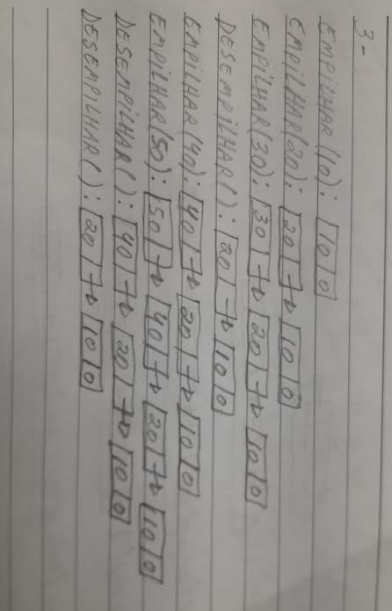 3-
EMPILHAR(10): 10 0
EMPILHAR(20): 20 → 10 0
EMPILHAR(30): 30 → 20 → 10 0
DESEMPILHAR(): 20 → 10 0
EMPILHAR(40): 40 → 20 → 10 0
EMPILHAR(50): 50 → 40 → 20 → 10 0
DESEMPILHAR(): 40 → 20 → 10 0
DESEMPILHAR(): 20 → 10 0